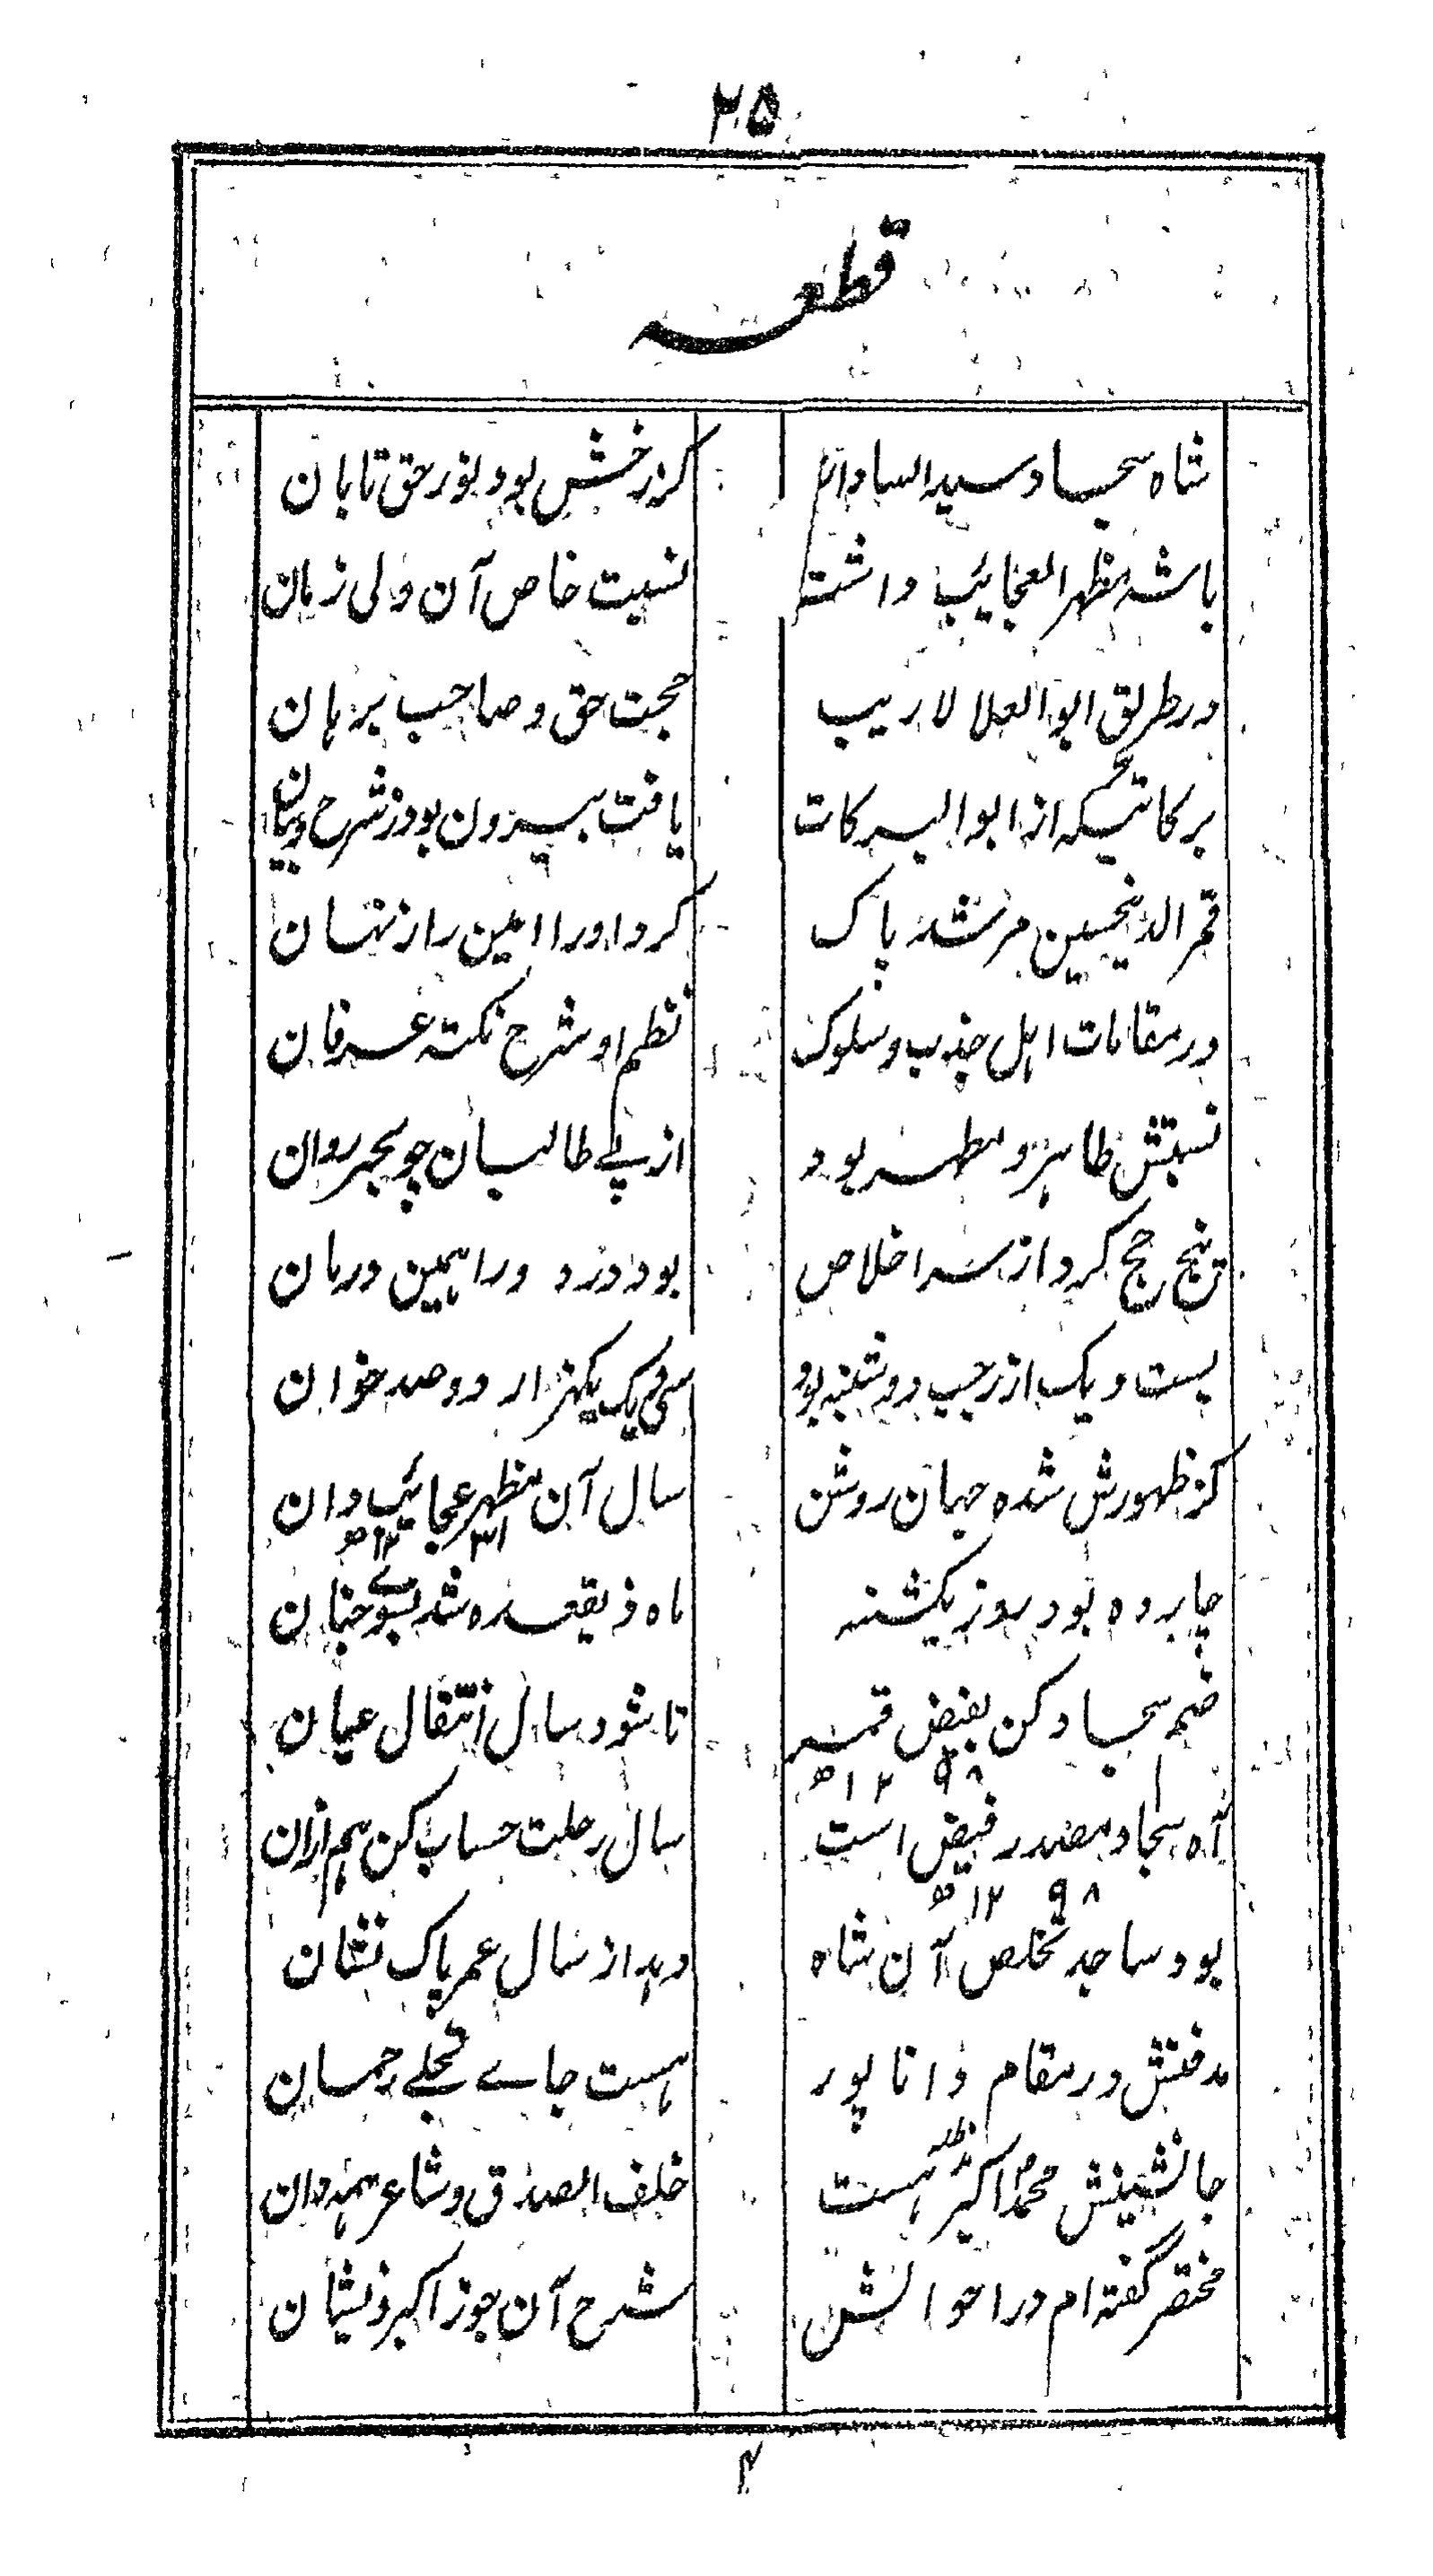 ۲۵
قطعہ
شاہ سجاد سید السادات کز رخش بود نور حق تابان
با شہ مظہر العجائب داشت نسبت خاص آن ولی زمان
در طریق ابو العلا لا ریب حجت حق و صاحب برہان
برکاتیکہ از ابو البرکات یافت بیرون بود ز شرح و بیان
قمر الدین حسین مرشد پاک کرد او را امین راز نہان
در مقامات اہل جذب و سلوک نظم او شرح نکتہ عرفان
نسبتش طاہر و مطہر بود از پے طالبان چو بحر روان
پنج حج کرد از سر اخلاص بود درد ورا ہمین درمان
بست و یک از رجب دوشنبہ بود سی و یک یکہزار دو صد خوان
کز ظہورش شدہ جہان روشن سال آن مظہر عجائب دان
۱۲۳۱ھ
چاردہ بود روز یکشنبہ ماہ ذیقعدہ شد بسوے جنان
ضم سجاد کن بفیض قمر تا شود سال انتقال عیان
۱۲۹۸ھ
آہ سجاد مصدر فیض است سال رحلت حساب کن ہم ازان
۱۲۹۸ھ
بود ساجد تخلص آن شاہ دہد از سال عمر پاک نشان
مدفنش در مقام دانا پور ہست جاے تجلے رحمان
جانشینش محمد اکبر ہست خلف الصدق و شاعر ہمہ دان
مدظلہ
مختصر گفتہ ام در احوالش شرح آن جوز اکبر ذیشان
۴